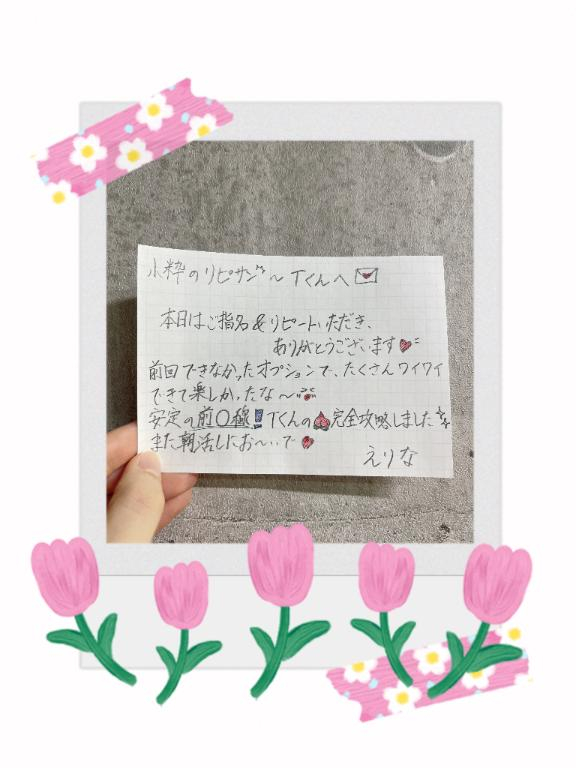 小粋のリピサゾ〜Tくんへ💌
本日はご指名&リピートいただき、
ありがとうございます♥
前回できなかったオプションで、たくさんワイワイ
できて楽しかったな〜
安定の前〇線‼Tくんの🍑完全攻略しました
また朝活しにお〜いで♥
えりな